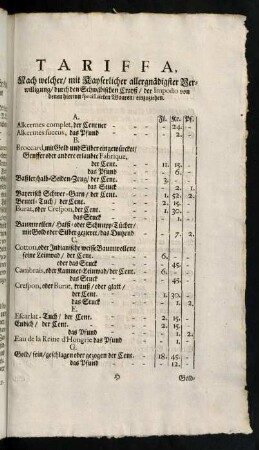 TARIFFA,
Nach welcher/ mit Kayserlicher allergnädigster Ver-
willigung/ durch den Schwäbischen Crayß/ der Imposto von
denen hierinn specificirten Waaren/ einzuziehen.
A. Fl. Kr. Pf.
Alkermes complet. der Centner - 24. -
Alkermes succus, das Pfund - 2. -
B.
Broccard, mit Gold und Silber eingewürcket/
Genffer oder andere erlaubte Fabrique,
der Cent. 11. 15. -
das Pfund - 6. -
Baßler halb-Seiden-Zeug/ der Cent. 3. - -
das Stuck - 2. 1.
Bayerisch Schwer-Garn/ der Cent. 1. 52. 2.
Beutel-Tuch/ der Cent. 2. 15. -
Burat, oder Crespon, der Cent. 1. 30. -
das Stuck - 1. -
Baumwollen/ Halß- oder Schnupp-Tücher/
mit Gold oder Silber gezieret/ das Dutzend - 7. 2.
C.
Cotton, oder Indianische weisse Baumwollene
feine Leinwad/ der Cent. 6. - -
oder das Stuck - 45. -
Cambrais, oder Kammer-Leinwad/ der Cent. 6. - -
das Stuck - 45. -
Crespon, oder Burat, krauß/ oder glatt/
der Cent. 1. 30. -
das Stuck - 1. 2.
E.
Escarlat-Tuch/ der Cent. 2. 15. -
Endich/ der Cent. 2. 15. -
das Pfund - 1. 2.
Eau de la Reine d'Hungrie das Pfund - 1. -
G.
Gold/ fein/ geschlagen oder gezogen der Cent. 18. 45. -
das Pfund - 12. -
Gold-